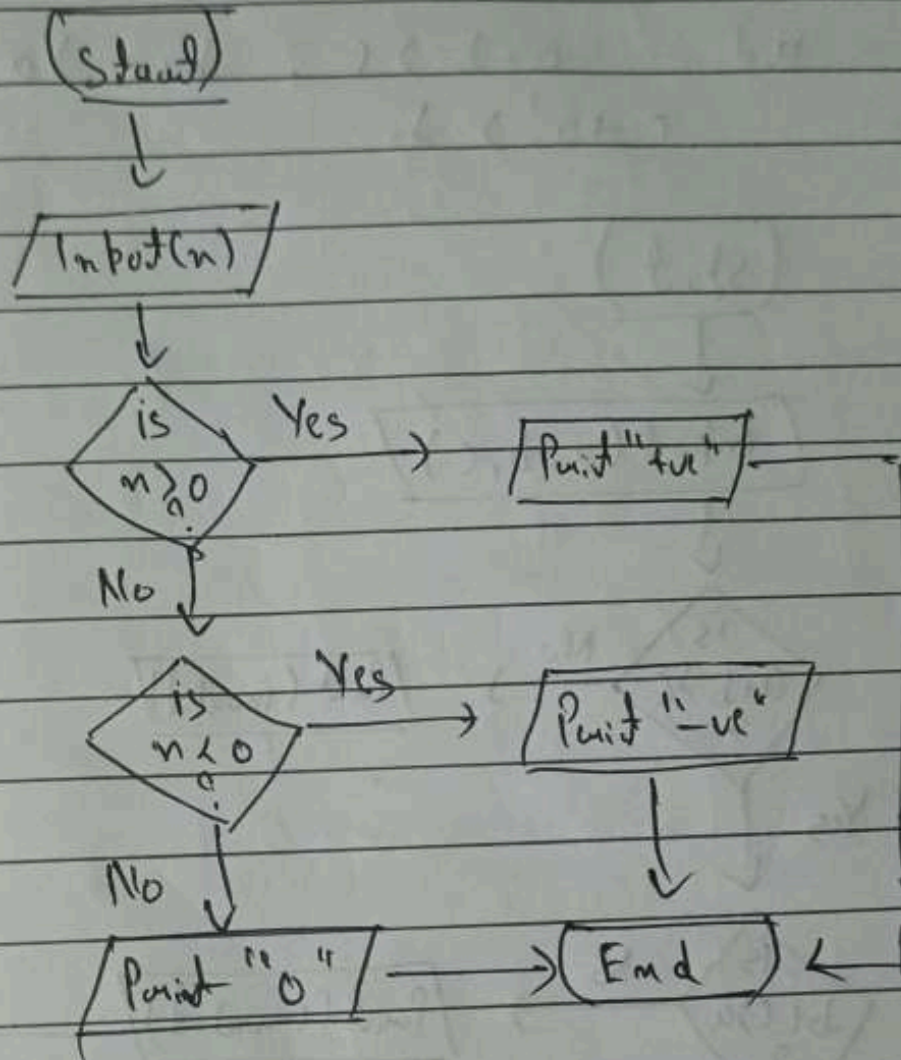 Start
Input(n)
is
n>0
?
Yes
Print "+ve"
No
is
n<0
?
Yes
Print "-ve"
No
Print "0"
End